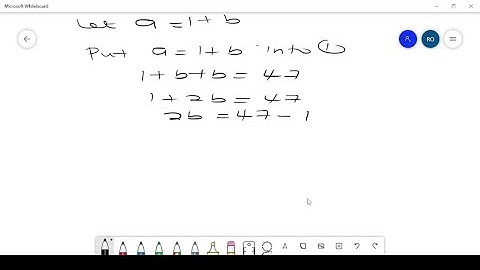 Microsoft Whiteboard
Let a = 1 + b
RO
Put a = 1 + b into ①
1 + b + b = 47
1 + 2b = 47
2b = 47 - 1